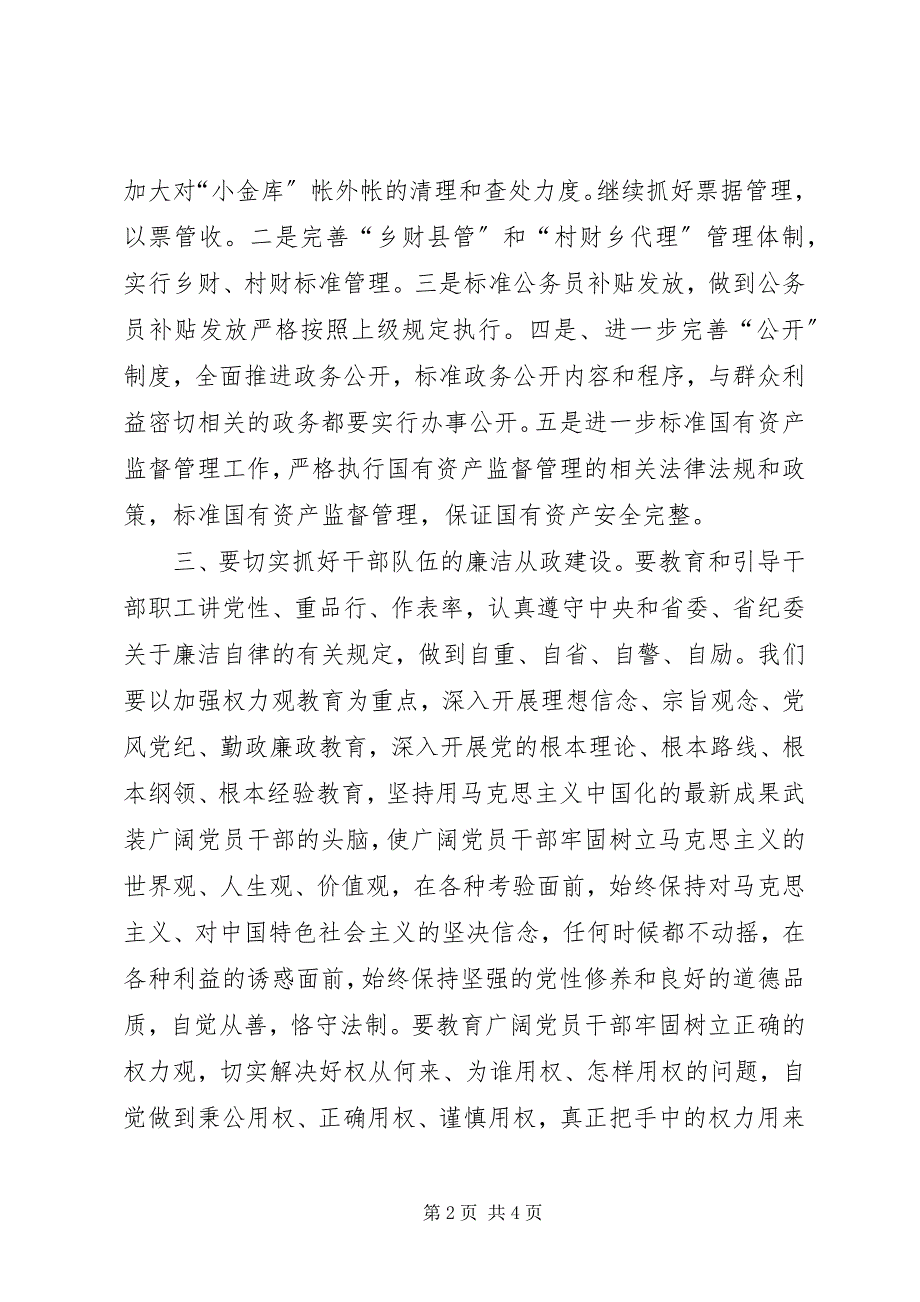 加大对“小金库〞帐外帐的清理和查处力度。继续抓好票据管理，
以票管收。二是完善“乡财县管〞和“村财乡代理〞管理体制，
实行乡财、村财标准管理。三是标准公务员补贴发放，做到公务
员补贴发放严格按照上级规定执行。四是、进一步完善“公开〞
制度，全面推进政务公开，标准政务公开内容和程序，与群众利
益密切相关的政务都要实行办事公开。五是进一步标准国有资产
监督管理工作，严格执行国有资产监督管理的相关法律法规和政
策，标准国有资产监督管理，保证国有资产安全完整。
三、要切实抓好干部队伍的廉洁从政建设。要教育和引导干
部职工讲党性、重品行、作表率，认真遵守中央和省委、省纪委
关于廉洁自律的有关规定，做到自重、自省、自警、自励。我们
要以加强权力观教育为重点，深入开展理想信念、宗旨观念、党
风党纪、勤政廉政教育，深入开展党的根本理论、根本路线、根
本纲领、根本经验教育，坚持用马克思主义中国化的最新成果武
装广阔党员干部的头脑，使广阔党员干部牢固树立马克思主义的
世界观、人生观、价值观，在各种考验面前，始终保持对马克思
主义、对中国特色社会主义的坚决信念，任何时候都不动摇，在
各种利益的诱惑面前，始终保持坚强的党性修养和良好的道德品
质，自觉从善，恪守法制。要教育广阔党员干部牢固树立正确的
权力观，切实解决好权从何来、为谁用权、怎样用权的问题，自
觉做到秉公用权、正确用权、谨慎用权，真正把手中的权力用来
第 2 页 共 4 页